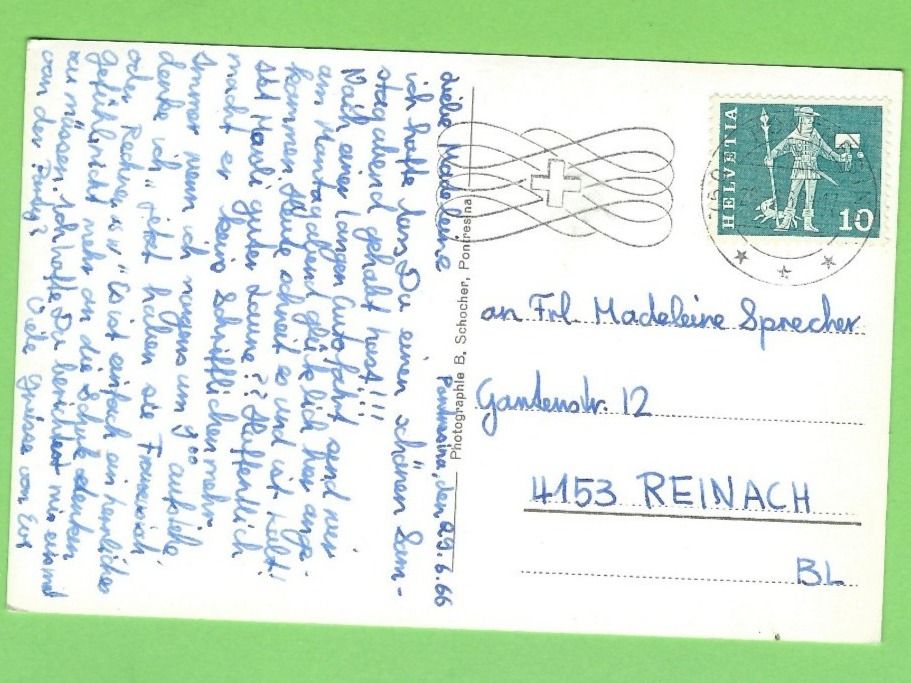 Pontresina, den 29.6.66
Liebe Madeleine
ich hoffe dass Du einen schönen Sam-
stagabend gehabt hast!!!
Nach einer langen Autofahrt sind wir
am Montagabend glücklich hier ange-
kommen. Heute schneit es und ist kalt!
Ist Hansli guter Laune?? Hoffentlich
macht er keine Schriftlichen mehr.
Immer wenn ich morgens um 9⁰⁰ aufstehe
denke ich "jetzt haben sie Französisch
oder Rechnen"! Es ist einfach ein herrliches
Gefühl nicht mehr an die Schule denken
zu müssen. Ich hoffe Du berichtest mir einmal
von der
Viele Grüsse von
Photographie B. Schocher, Pontresina
HELVETIA
10
an Frl. Madeleine Sprecher
Gartenstr. 12
4153 REINACH
BL